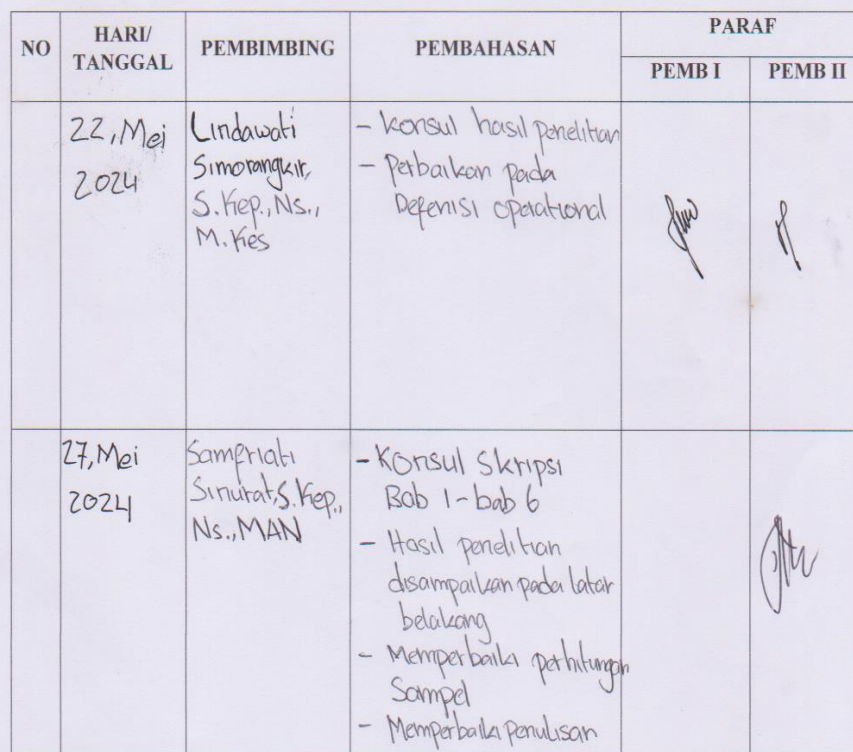 NO
HARI/
TANGGAL
PEMBIMBING
PEMBAHASAN
PARAF
PEMB I
PEMB II
22, Mei
2024
Lindawati
Simorangkir,
S.Kep., Ns.,
M.Kes
- Konsul hasil penelitian
- Perbaikan pada
Defenisi operational
27, Mei
2024
Sampriati
Sinurat, S.Kep.,
Ns., MAN
- Konsul Skripsi
Bab 1 - bab 6
- Hasil penelitian
disampaikan pada latar
belakang
- Memperbaiki perhitungan
Sampel
- Memperbaiki penulisan